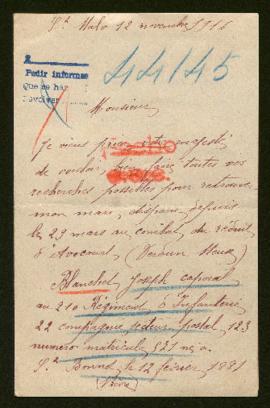 St Malo 12 novembre 1916
2
Pedir informes
Que se haz
44145
Monsieur
Je vous prie votre majesté
de vouloir bien faire toutes vos
recherches possibles pour retrouver
mon mari, disparu depuis
le 29 mars au combat, du réduit
d'Avocourt, (Verdun Meuse)
Blanchet Joseph caporal
au 210 Régiment d'Infanterie
22 compagnie secteur postal, 123
numero matricule 521 né a
St Bonnet le 12 fevrier 1881